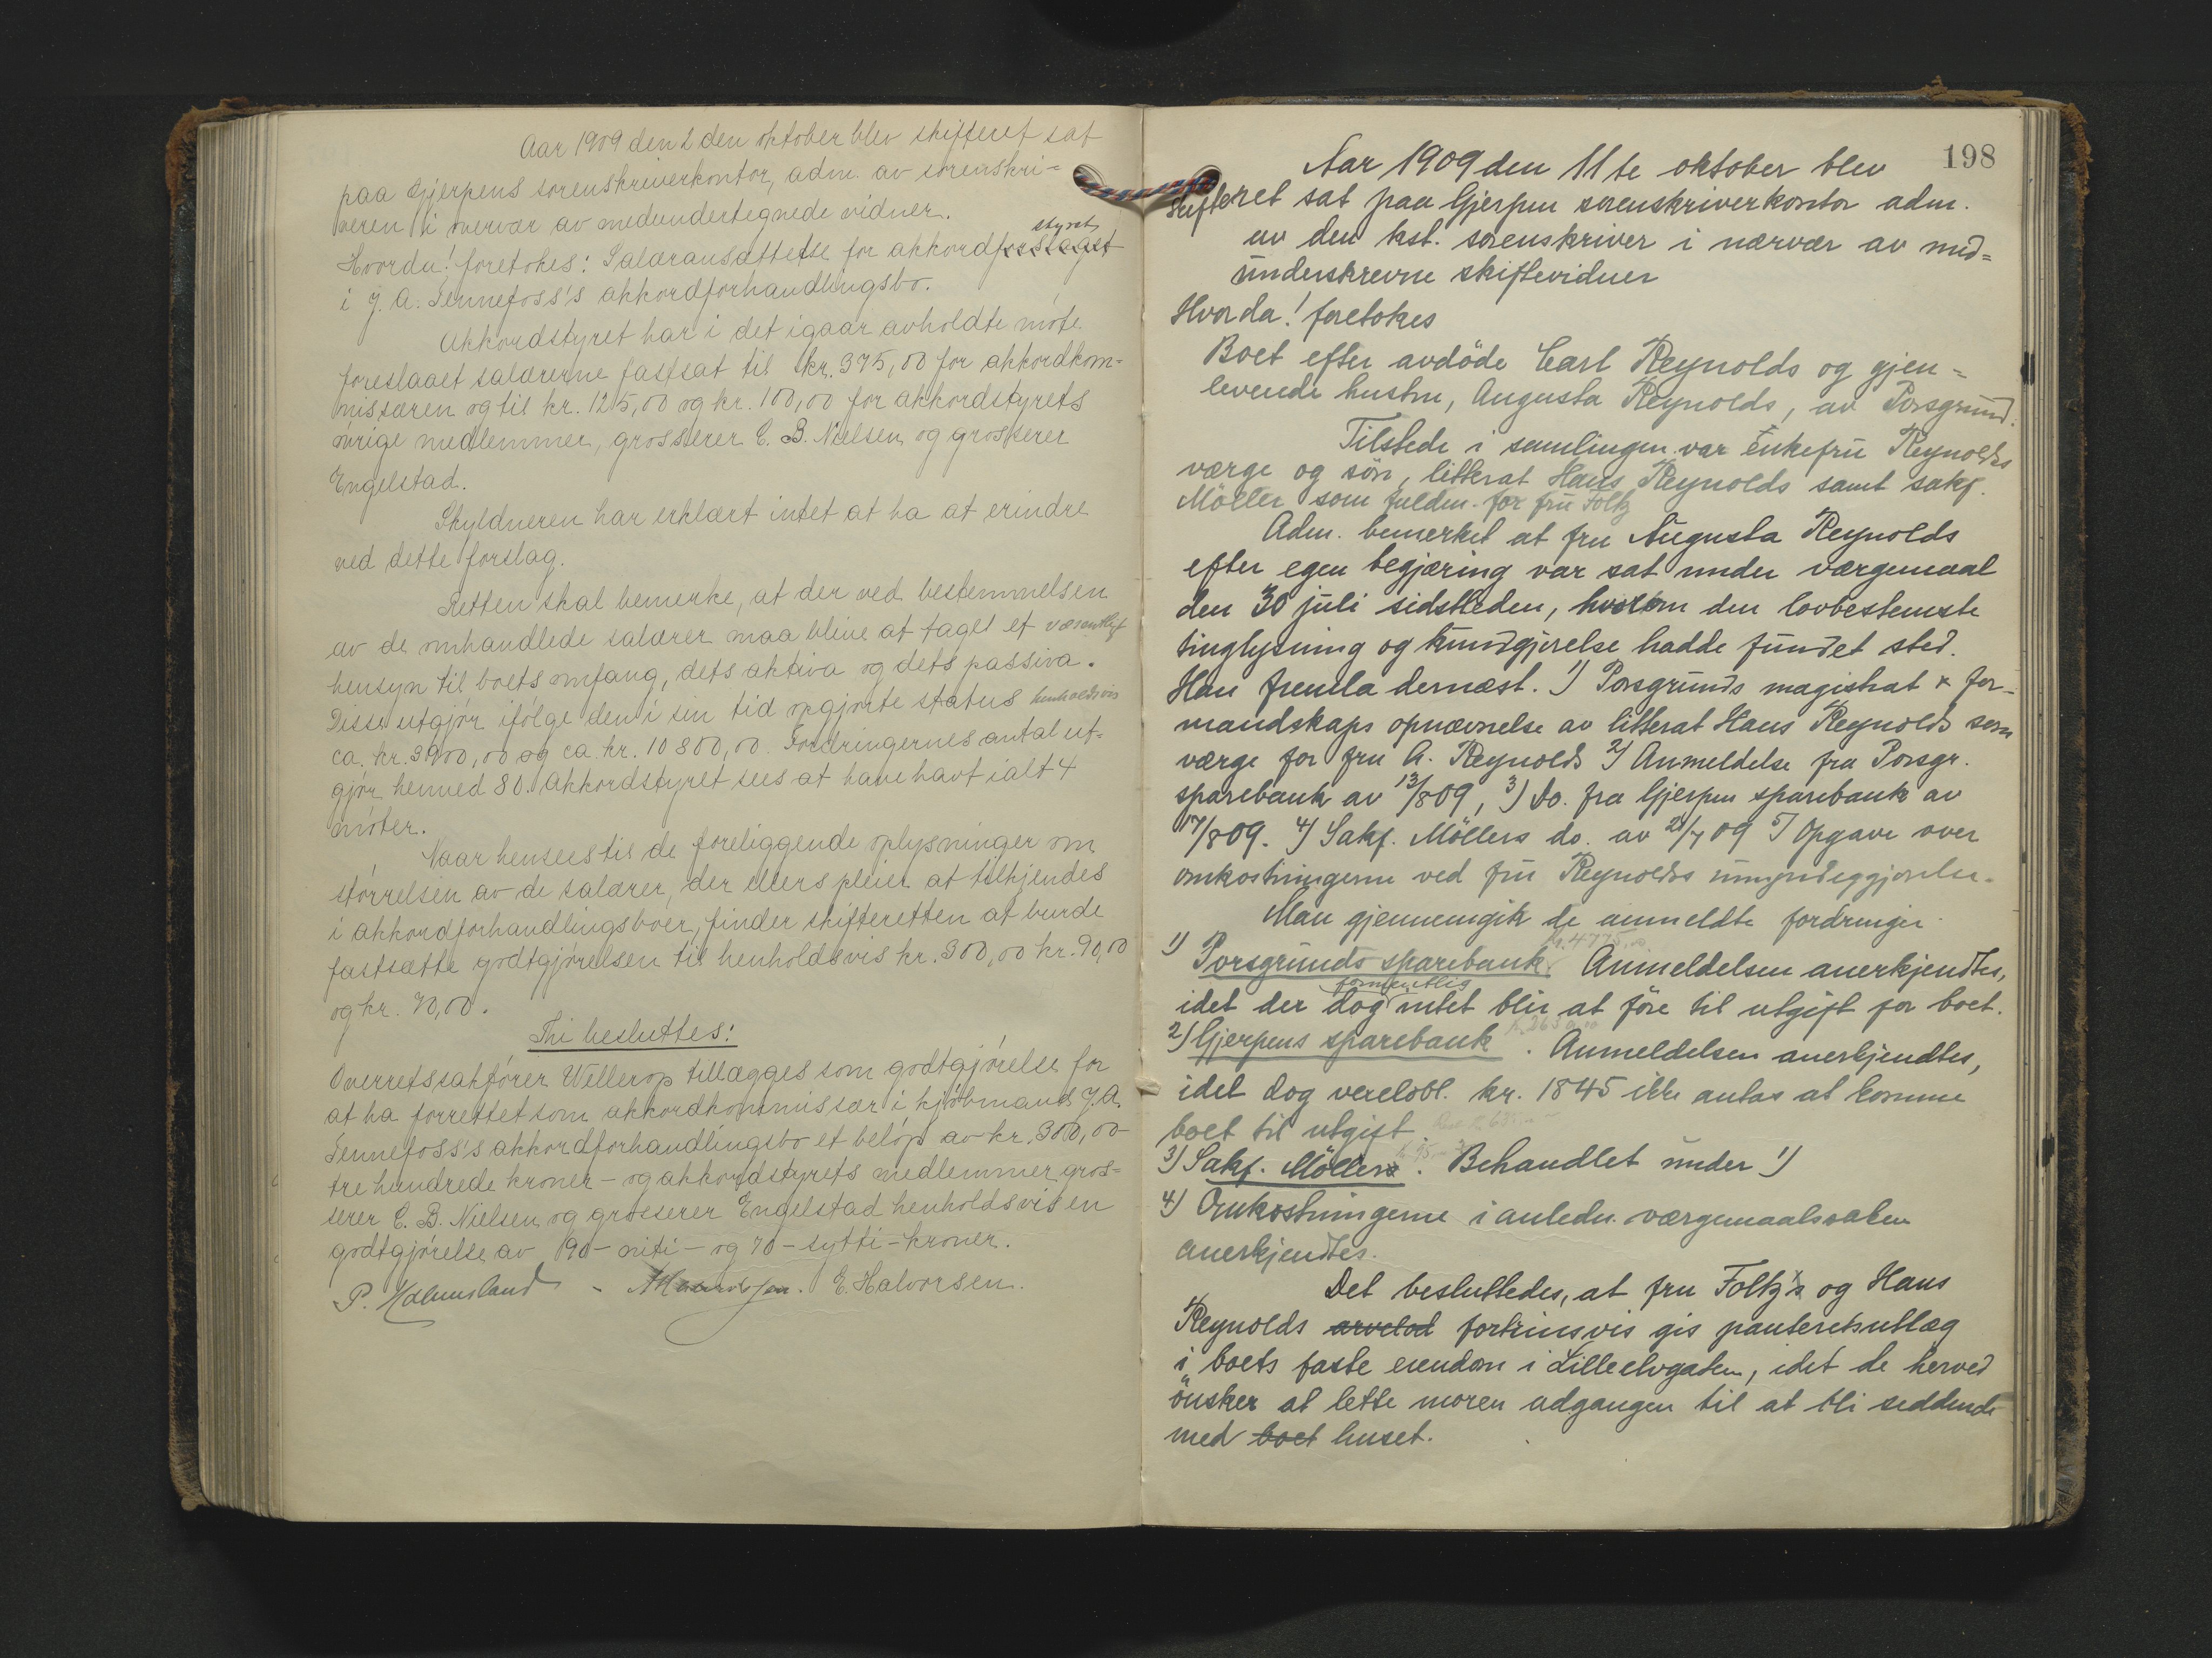 Aar 1909 den 2den oktober blev skifteret sat
paa Gjerpens sorenskriverkontor, adm. av sorenskri-
veren i overvær av medundertegnede vidner.
styret
Hvorda! foretokes: Salæransættelse for akkord
i J. A. Tennefoss's akkordforhandlingsbo.
Akkordstyret har i det igaar avholdte møte
foreslaaet salærerne fastsat til kr. 375,00 for akkordkom-
missæren og til kr. 125,00 og kr. 100,00 for akkordstyrets
øvrige medlemmer, grosserer C. B. Nielsen og grosserer
Engelstad.
Skyldneren har erklært intet at ha at erindre
ved dette forslag.
Retten skal bemerke, at der ved bestemmelsen
av de omhandlede salærer maa blive at taget et væsentligt
hensyn til boets omfang, dets aktiva og dets passiva.
Disse utgjør ifølge den i sin tid opgjorte status henholdsvis
ca. kr. 3900,00 og ca. kr. 10800,00. Fordringernes antal ut-
gjør henved 80. Akkordstyret sees at have havt ialt 4
møter.
Naar henses til de foreliggende oplysninger om
størrelsen av de salærer, der ellers pleier at tilkjendes
i akkordforhandlingsboer, finder skifteretten at burde
fastsætte godtgjørelsen til henholdsvis kr. 300,00 kr. 90,00
og kr. 70,00.
Thi besluttes:
Overretssakfører Wellerop tillægges som godtgjørelse for
at ha forrettet som akkordkommissær i kjøbmand J. A.
Tennefoss's akkordforhandlingsbo et beløp av kr. 300,00
tre hundrede kroner – og akkordstyrets medlemmer gros-
serer C. B. Nielsen og grosserer Engelstad henholdsvis en
godtgjørelse av 90 – niti – og 70 – sytti – kroner.
P. Holmesland E. Halvorsen.
198
Aar 1909 den 11te oktober blev
skifteret sat paa Gjerpen sorenskriverkontor adm.
av den kst. sorenskriver i nærvær av med-
underskrevne skiftevidner
Hvorda! foretokes
Boet efter avdöde Carl Reynolds og gjen-
levende hustru, Augusta Reynolds, av Porsgrund.
Tilstede i samlingen var Enkefru Reynolds
værge og sön, litterat Hans Reynolds samt sakf.
Möller som fuldm. for fru Foltz
Adm. bemerket at fru Augusta Reynolds
efter egen begjæring var sat under værgemaal
den 30 juli sidstleden, hvorom den lovbestemte
tinglysning og kundgjørelse hadde fundet sted.
Han fremla dernæst. 1) Porsgrunds magistrat & for-
mandskaps opnævnelse av litterat Hans Reynolds som
værge for fru A. Reynolds 2) Anmeldelse fra Porsgr.
sparebank av 13/8 09, 3) Do. fra Gjerpen sparebank av
17/8 09. 4) Sakf. Möllers do. av 21/7 09 5) Opgave over
omkostningerne ved fru Reynolds umyndiggjørelse.
Man gjennemgik de anmeldte fordringer.
kr. 4775,00.
1) Porsgrunds sparebank. Anmeldelsen anerkjendtes,
formentlig
idet der dog intet blir at före til utgift for boet.
2) Gjerpens sparebank. Anmeldelsen anerkjendtes,
idet dog vexelobl. kr. 1845 ikke antas at komme
boet til utgift
3) Sakf. Möllers. Behandlet under 1)
4) Omkostningerne i anledn. værgemaalssaken
anerkjendtes.
Det besluttedes, at fru Foltz's og Hans
Reynolds arvelod fortrinsvis gis panteretsutlæg
i boets faste eiendom i Lilleelvgaten, idet de herved
önsker at lette moren adgangen til at bli siddende
med boet huset.